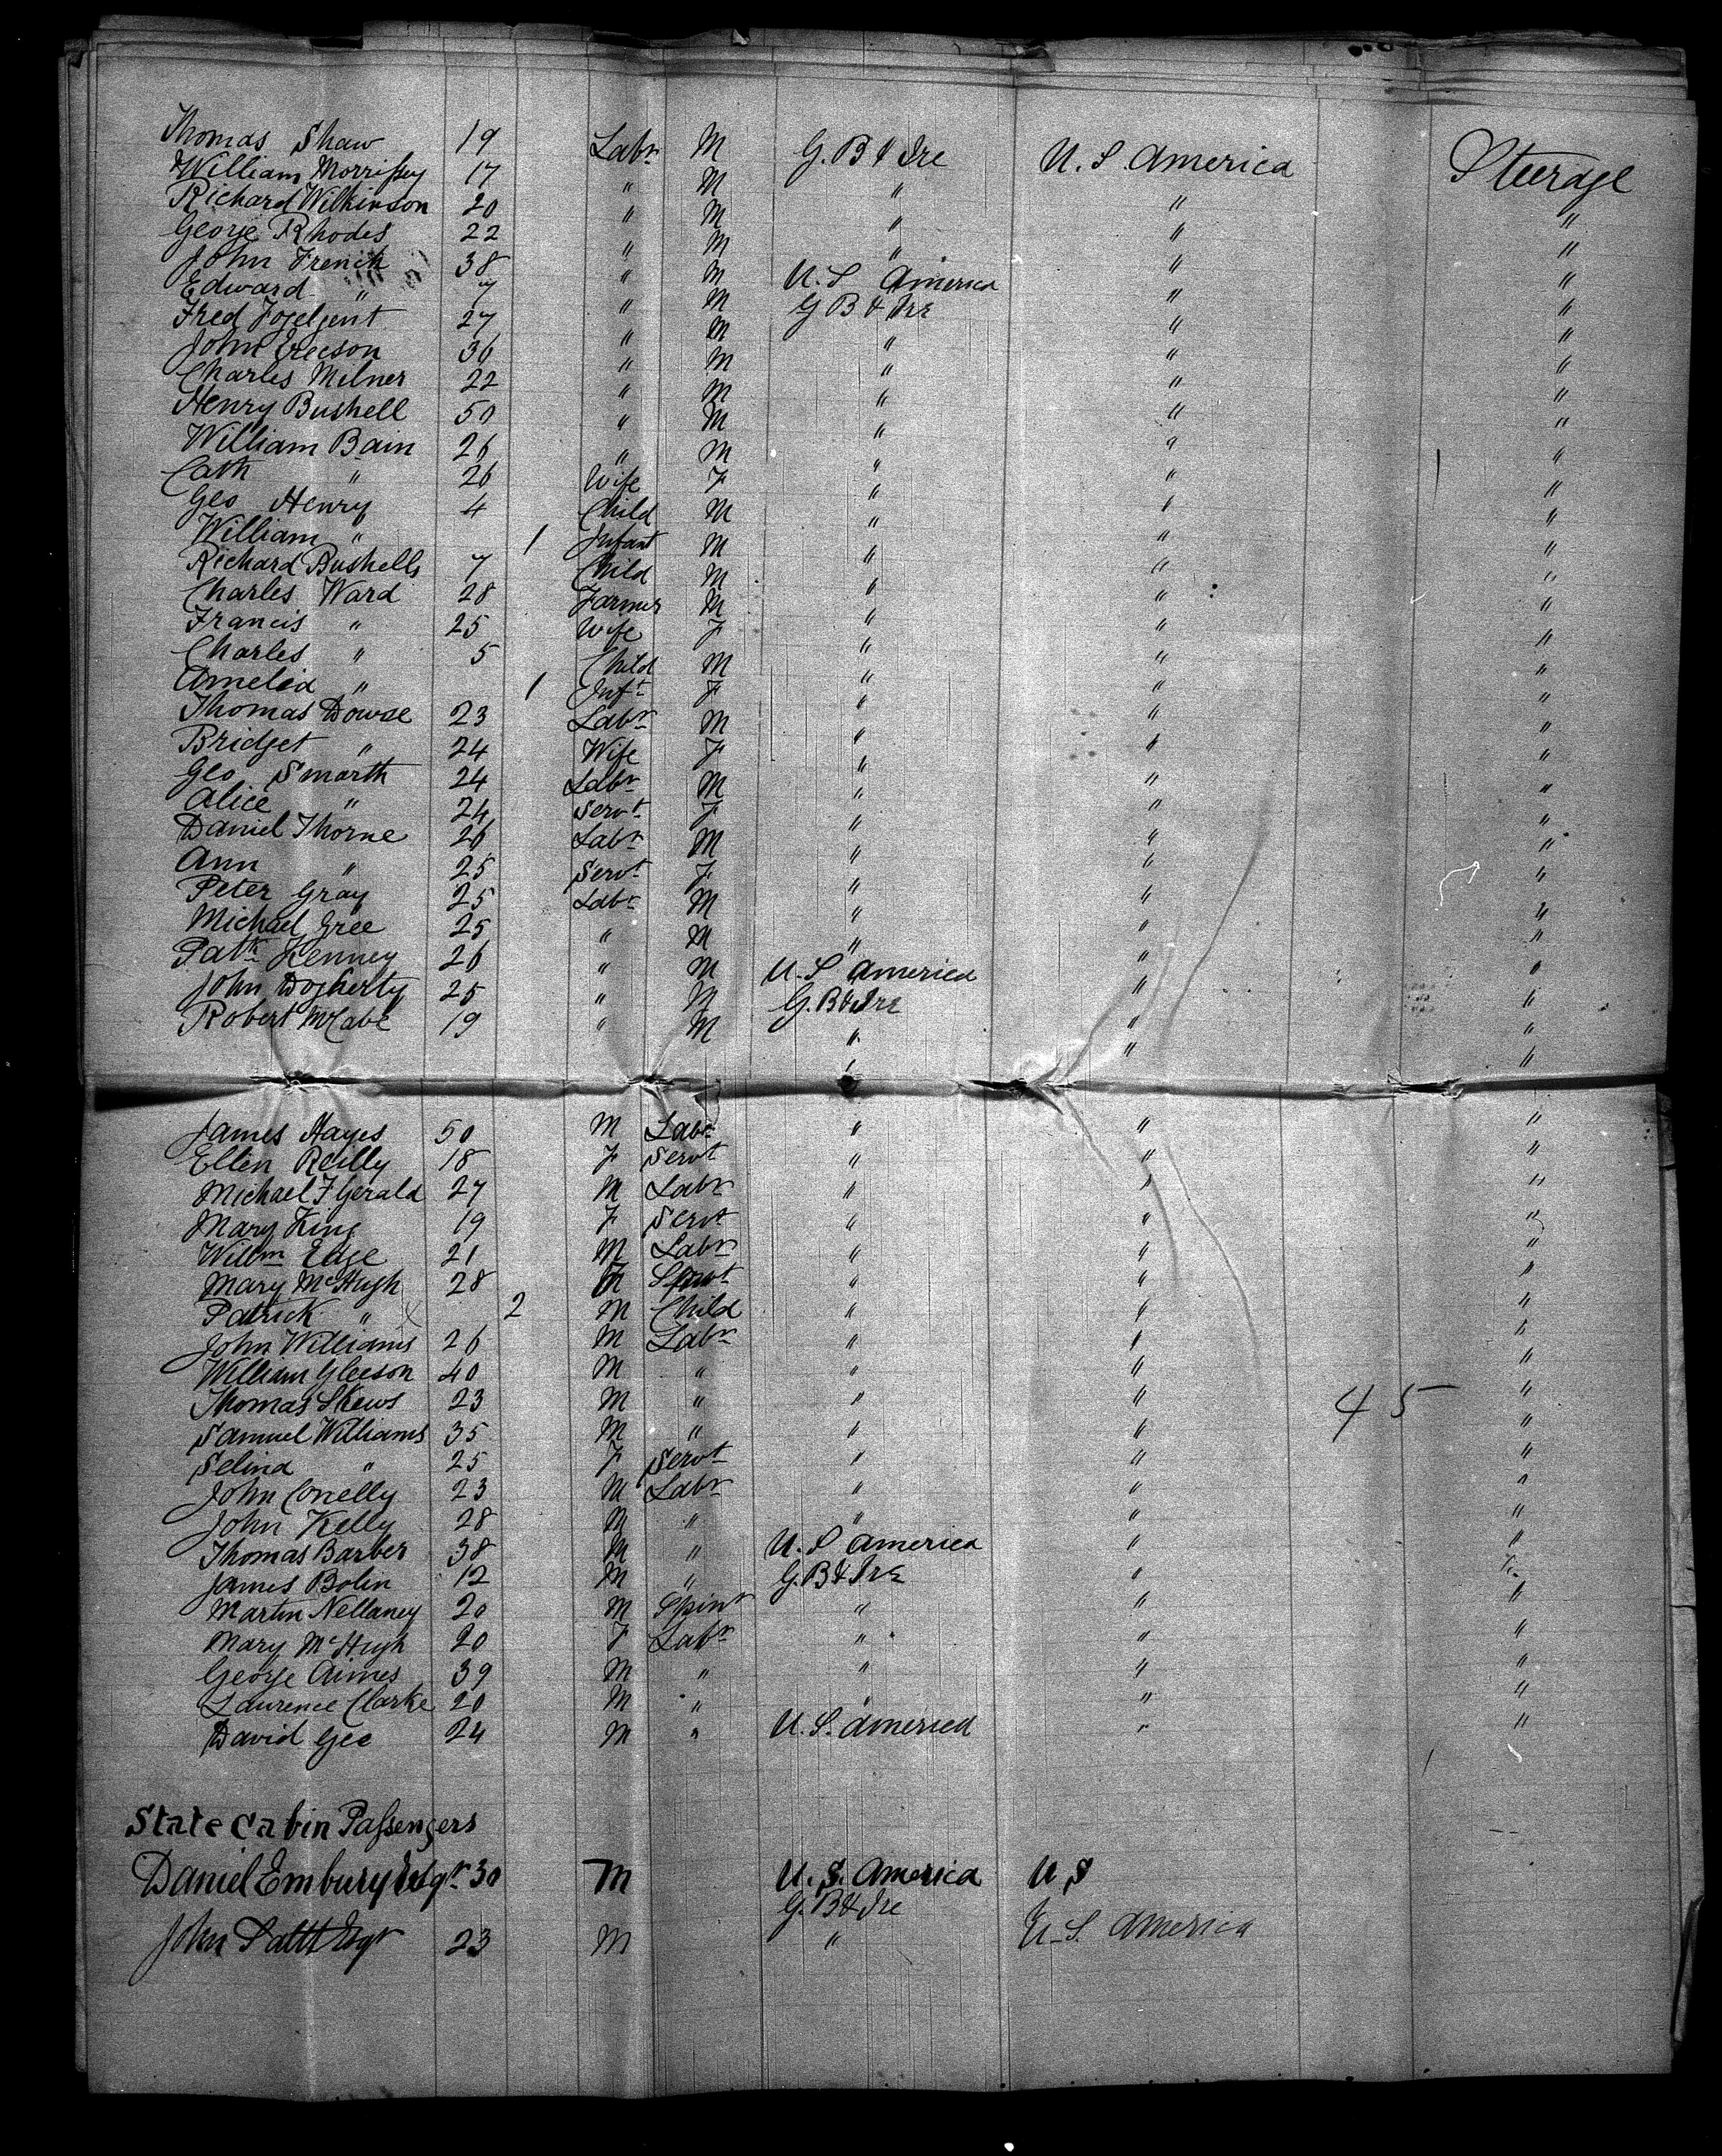 Thomas Shaw 19 Labr M G. B & Ire U. S. America Steerage
William Morrissey 17 " M " " "
Richard Wilkinson 20 " M " " "
George Rhodes 22 " M " " "
John French 38 " M U. S America " "
Edward " 7 " M G B & Ire " "
Fred 27 " M " " "
John Erecson 36 " M " " "
Charles Milner 22 " M " " "
Henry Bushell 50 " M " " "
William Bain 26 " M " " "
Cath " 26 Wife F " " "
Geo Henry 4 Child M " " "
William " 1 Infant M " " "
Richard Bushells 7 Child M " " "
Charles Ward 28 Farmer M " " "
Francis " 25 Wife F " " "
Charles " 5 Child M " " "
Amelia " 1 Inft F " " "
Thomas Dowse 23 Labr M " " "
Bridget " 24 Wife F " " "
Geo Smarth 24 Labr M " " "
Alice " 24 Servt F " " "
Daniel Thorne 26 Labr M " " "
Ann " 25 Servt F " " "
Peter Gray 25 Labr M " " "
Michael Gree 25 " M " " "
Patk Kenney 26 " M U. S America " "
John Dogherty 25 " M G. B & Ire " "
Robert McCabe 19 " M " " "
James Hayes 50 M Labr " " "
Ellen Reilly 18 F Servt " " "
Michael FGerald 27 M Labr " " "
Mary King 19 F Servt " " "
Willm Edge 21 M Labr " " "
Mary McHugh 28 F " " "
Patrick " 2 M Child " " "
John Williams 26 M Labr " " "
William Gleeson 40 M " " " "
Thomas Skews 23 M " " " 45 "
Samuel Williams 35 M " " " "
Selina " 25 F Servt " " "
John Conelly 23 M Labr " " "
John Kelly 28 M " " " "
Thomas Barber 38 M " U. S America " "
James Bolin 12 M " G. B & Ire " "
Martin Nellaney 20 M Spinr " " "
Mary McHugh 20 F Labr " " "
George Aimes 39 M " " " "
Laurence Clarke 20 M " " " "
David Gee 24 M " U. S. America " "
State Cabin Passengers
Daniel Embury Esqr 30 M U. S. America U S
G. B & Ire
John Esqr 23 M " U. S. America